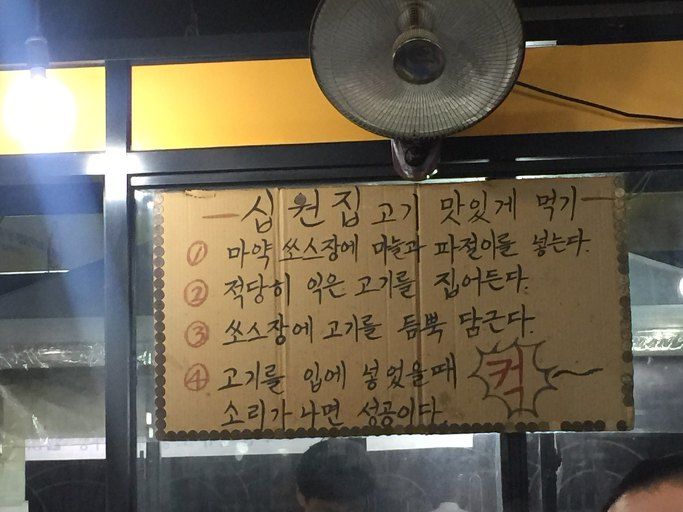 - 십원집 고기 맛있게 먹기 -
① 마약 쏘스장에 마늘과 파절이를 넣는다.
② 적당히 익은 고기를 집어든다.
③ 쏘스장에 고기를 듬뿍 담근다.
④ 고기를 입에 넣었을때 컥~
소리가 나면 성공이다.